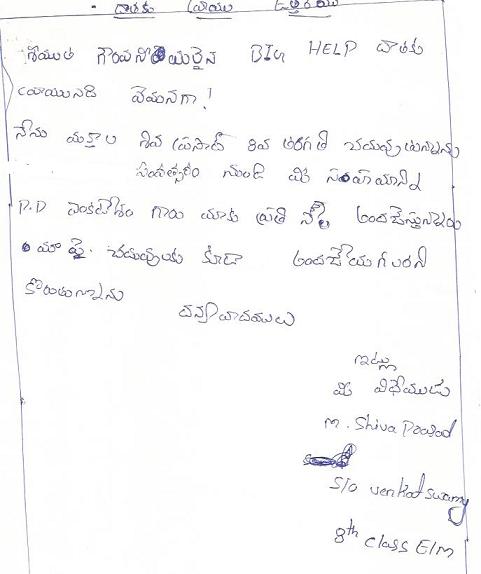 దాతకు వ్రాయు ఉత్తరము
శ్రీయుత గౌరవనీయులైన BIG HELP దాతకు
వ్రాయునది ఏమనగా!
నేను మక్కాల శివ ప్రసాద్ 8వ తరగతి చదువుతున్నాను
సంవత్సరం నుండి మీ సహాయాన్ని
P.D వెంకటేశం గారు మాకు ప్రతి అందజేస్తున్నారు
మా పై చదువులకు కూడా అందజేయగలరని
కోరుతున్నాను
ధన్యవాదములు
ఇట్లు
మీ విధేయుడు
M. Shiva Prasad
S/o venkat swamy
8th class E/m